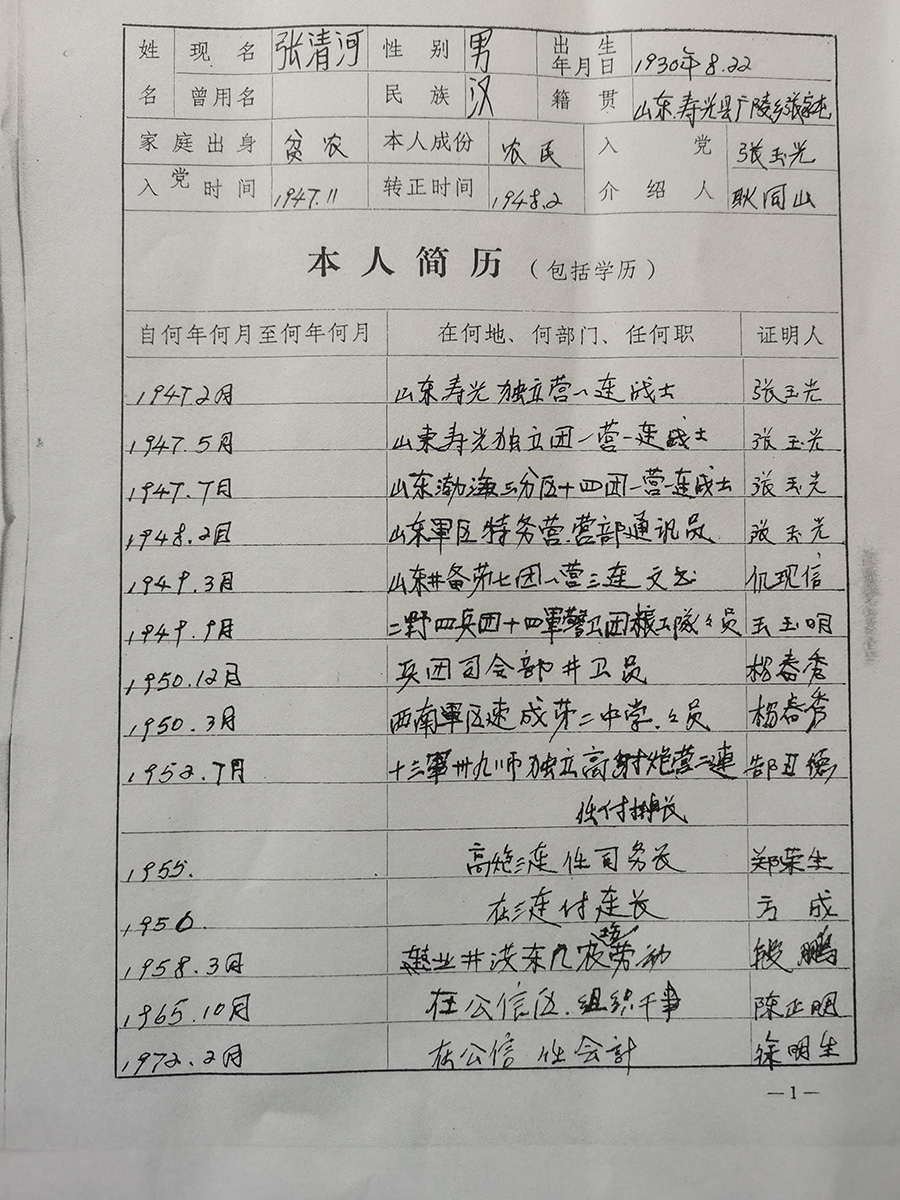 姓 现名 张清河 性别 男 出生年月日 1930年8.22
名 曾用名 民族 汉 籍贯 山东.寿光县广陵乡张家庄
家庭出身 贫农 本人成份 农民 入党 张玉光
入党时间 1947.11 转正时间 1948.2 介绍人 耿同山
本人简历(包括学历)
自何年何月至何年何月 在何地、何部门、任何职 证明人
1947.2月 山东寿光独立营一连战士 张玉光
1947.5月 山東寿光独立团一营一连战士 张玉光
1947.7月 山东渤海三分区十四团一营一连战士 张玉光
1948.2月 山东軍区特务营.营部通讯员 张玉光
1949.3月 山东井备第七团一营三连文书 仉现信
1949.9月 二野四兵团十四軍警卫团粮工隊々员 王玉明
1950.12月 兵团司令部井卫员 杨春秀
1950.3月 西南軍区速成第二中学.々员 杨春秀
1952.7月 十三軍卅九师独立高射炮营二連 郜丑德
任付排长
1955. 高炮三连任司务长 郑荣生
1956. 在三连付连长 方成
1958.3月 業井洪东几农场劳动 段鹏
1965.10月 在公信区.组织干事 陈正明
1972.2月 在公信任会計 徐明生
—1—